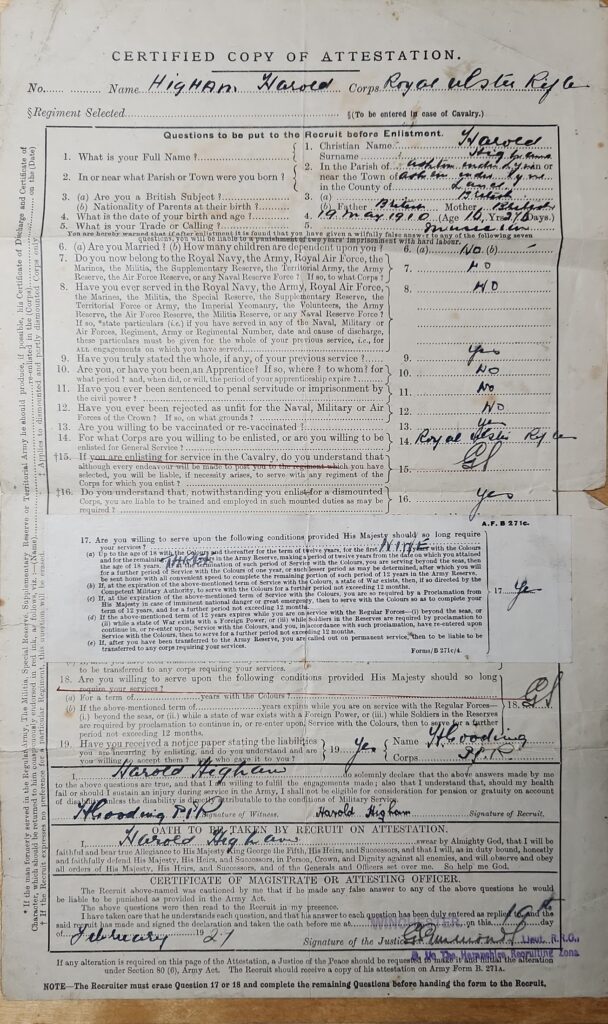 CERTIFIED COPY OF ATTESTATION.
No. Name Higham Harold Corps Royal Ulster Rifle
§Regiment Selected §(To be entered in case of Cavalry.)
Questions to be put to the Recruit before Enlistment.
1. What is your Full Name ? 1. Christian Name Harold
Surname Higham
2. In or near what Parish or Town were you born ? 2. In the Parish of Ashton under Lyne or
near the Town of Ashton under Lyne
in the County of Lancs
3. (a) Are you a British Subject ? 3. (a) British
(b) Nationality of Parents at their birth ? (b) Father British Mother British
4. What is the date of your birth and age ? 4. 19 May 1910 (Age 16 Yrs 276 Days.)
5. What is your Trade or Calling ? 5. Musician
You are hereby warned that if after enlistment it is found that you have given a wilfully false answer to any of the following seven
questions, you will be liable to a punishment of two years' imprisonment with hard labour.
6. (a) Are you Married ? (b) How many children are dependent upon you ? 6. (a) No (b)
7. Do you now belong to the Royal Navy, the Army, Royal Air Force, the
Marines, the Militia, the Supplementary Reserve, the Territorial Army, the Army
Reserve, the Air Force Reserve or any Naval Reserve Force ? If so, to what Corps ? 7. No
8. Have you ever served in the Royal Navy, the Army, Royal Air Force,
the Marines, the Militia, the Special Reserve, the Supplementary Reserve, the
Territorial Force or Army, the Imperial Yeomanry, the Volunteers, the Army
Reserve, the Air Force Reserve, the Militia Reserve, or any Naval Reserve Force ?
If so, *state particulars (i.e.) if you have served in any of the Naval, Military or
Air Forces, Regiment, Army or Regimental Number, date and cause of discharge,
these particulars must be given for the whole of your previous service, i.e., for
ALL engagements on which you have served 8. No
9. Have you truly stated the whole, if any, of your previous service ? 9. Yes
10. Are you, or have you been, an Apprentice ? If so, where ? to whom ? for
what period ? and, when did, or will, the period of your apprenticeship expire ? 10. No
11. Have you ever been sentenced to penal servitude or imprisonment by
the civil power ? 11. No
12. Have you ever been rejected as unfit for the Naval, Military or Air
Forces of the Crown ? If so, on what grounds ? 12. No
13. Are you willing to be vaccinated or re-vaccinated ? 13. Yes
14. For what Corps are you willing to be enlisted, or are you willing to be
enlisted for General Service ? 14. Royal Ulster Rifle
†15. If you are enlisting for service in the Cavalry, do you understand that
although every endeavour will be made to post you to the regiment which you have
selected, you will be liable, if necessity arises, to serve with any regiment of the
Corps for which you enlist ? 15. GS
†16. Do you understand that, notwithstanding you enlist for a dismounted
Corps, you are liable to be trained and employed in such mounted duties as may be
required ? 16. Yes
A.F. B 271c.
17. Are you willing to serve upon the following conditions provided His Majesty should so long require
your services ?
(a) Up to the age of 18 with the Colours and thereafter for the term of twelve years, for the first NINE years with the Colours
and for the remaining THREE in the Army Reserve, making a period of twelve years from the date on which you attained
the age of 18 years
(b) If, at the expiration of the above-mentioned term of Service with the Colours, a state of War exists, then, if so directed by the
Competent Military Authority, to serve with the Colours for a further period not exceeding 12 months.
(c) If, at the expiration of the above-mentioned term of Service with the Colours, you are required by a Proclamation from
His Majesty in case of imminent national danger or great emergency, then to serve with the Colours so as to complete your
term of 12 years, and for a further period not exceeding 12 months.
(d) If the above-mentioned term of 12 years expires while you are on service with the Regular Forces—(i) beyond the seas, or
(ii) while a state of War exists with a Foreign Power, or (iii) while Soldiers in the Reserve are required by proclamation to
continue in, or re-enter upon, Service with the Colours and you, in accordance with such proclamation, have re-entered upon
Service with the Colours, then to serve for a further period not exceeding 12 months.
(e) If, after you have been transferred to the Army Reserve, you are called out on permanent service, then to be liable to be
transferred to any corps requiring your services. Forms/B 271c/4.
17. Yes
to be transferred to any corps requiring your services.
18. Are you willing to serve upon the following conditions provided His Majesty should so long
require your services ? 18. GS
(a) For a term of years with the Colours.
(b) If the above-mentioned term of years expire while you are on service with the Regular Forces—
(i.) beyond the seas, or (ii.) while a state of war exists with a foreign power, or (iii.) while Soldiers in the Reserve
are required by proclamation to continue in, or re-enter, upon, Service with the Colours, then to serve for a further
period not exceeding 12 months.
19. Have you received a notice paper stating the liabilities
you are incurring by enlisting, and do you understand and are
you willing to accept them ? Who gave it to you ? 19 Yes Name H Gooding
Corps
I, Harold Higham do solemnly declare that the above answers made by me
to the above questions are true, and that I am willing to fulfil the engagements made; also that I understand that, should my health
fail or should I sustain an injury during service in the Army, I shall not be eligible for consideration for pension or gratuity on account
of disability unless the disability is directly attributable to the conditions of Military Service.
H Gooding Signature of Witness. Harold Higham Signature of Recruit.
OATH TO BE TAKEN BY RECRUIT ON ATTESTATION.
I, Harold Higham swear by Almighty God, that I will be
faithful and bear true Allegiance to His Majesty King George the Fifth, His Heirs, and Successors, and that I will, as in duty bound, honestly
and faithfully defend His Majesty, His Heirs, and Successors, in Person, Crown, and Dignity against all enemies, and will observe and obey
all orders of His Majesty, His Heirs, and Successors, and of the Generals and Officers set over me. So help me God.
CERTIFICATE OF MAGISTRATE OR ATTESTING OFFICER.
The Recruit above-named was cautioned by me that if he made any false answer to any of the above questions he would
be liable to be punished as provided in the Army Act.
The above questions were then read to the Recruit in my presence.
I have taken care that he understands each question, and that his answer to each question has been duly entered as replied to, and the
said recruit has made and signed the declaration and taken the oath before me at WINCHESTER on this 19th day
of February 1927 Signature of the Justice
Recruiting Zone
If any alteration is required on this page of the Attestation, a Justice of the Peace should be requested to make it and initial the alteration
under Section 80 (6), Army Act. The Recruit should receive a copy of his attestation on Army Form B. 271A.
NOTE—The Recruiter must erase Question 17 or 18 and complete the remaining Questions before handing the form to the Recruit.